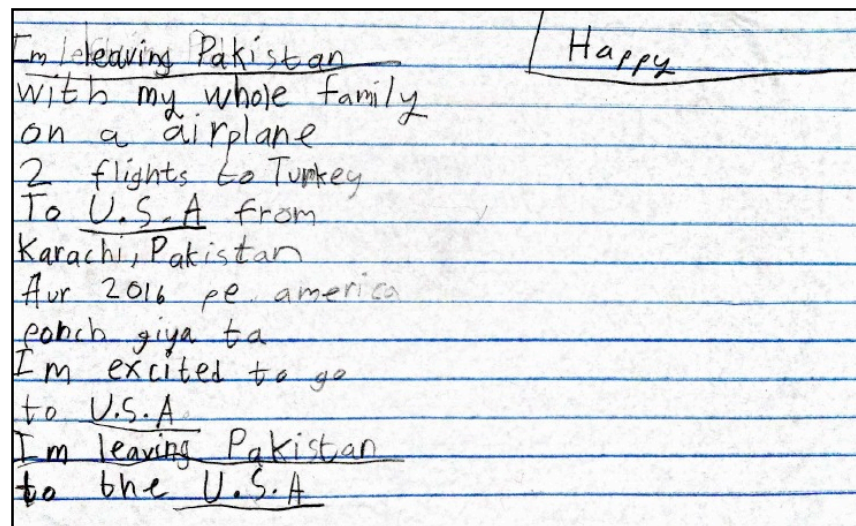 Im leleaving Pakistan
Happy
with my whole family
on a airplane
2 flights to Turkey
To U.S.A from
Karachi, Pakistan
Aur 2016 pe america
ponch giya ta
Im excited to go
to U.S.A
Im leaving Pakistan
to the U.S.A